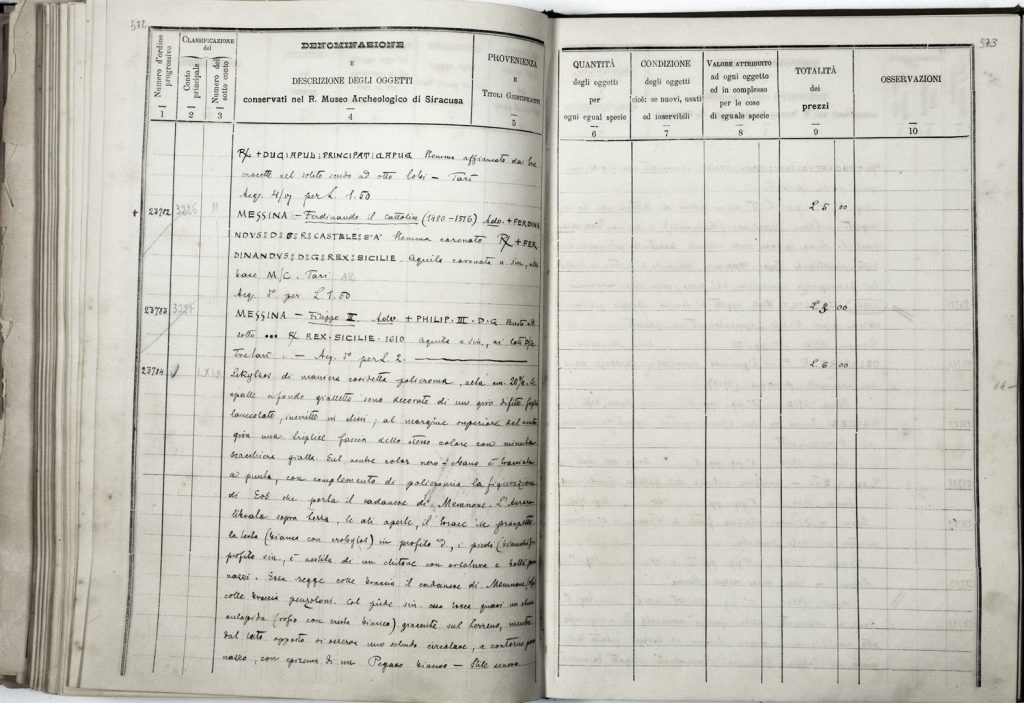 572
Numero d'ordine progressivo
1
CLASSIFICAZIONE del
Conto principale
2
Numero del sotto conto
3
DENOMINAZIONE
E
DESCRIZIONE DEGLI OGGETTI
conservati nel R. Museo Archeologico di Siracusa
4
PROVENIENZA
E
TITOLI GIUSTIFICATIVI
5
℞ + DUC : APUL : PRINCIPAT : CAPUA Stemma affiancato da tre
crocette nel solito scudo ad otto lobi — Tarì
Acq. per L. 1.50
+ 23782 3226 M MESSINA — Ferdinando il cattolico (1480-1516) Adv. + FERDINA
NDVS : D : G : R : CASTELE : S A Stemma coronato ℞ + FER
DINANDVS : D : G : REX : SICILIE. Aquila coronata a sin., alla
base M/C. Tarì AR
Acq. per L. 1.50
23783 3227 MESSINA — Filippo III. Adv + PHILIP. III. D. G Busto
sotto ... ℞ REX . SICILIE . 1610 aquila a sin., ai lati
Tretarì . — Acq. per L. 2.
23784 LXIX Lekythos di maniera cosidetta policroma, alta cm.
spalle a fondo gialletto sono decorate di un giro di fitte foglie
lanceolate, inscritte in ; al margine superiore del ventre
gira una fascia dello stesso colore con minuta
scacchiera gialla. Sul ventre color nero ebano è tracciata
a punta, con complemento di policromia la figurazione
di Eos che porta il cadavere di Memnone. L'Aurora
librata sopra terra, le ali aperte, il torace in prospetto
la testa (bianca con crobylos) in profilo d., i piedi (bianchi) in
profilo sin., è vestita di un chitone con
. Essa regge colle braccia il cadavere di Memnone
colle braccia penzoloni. Col piede sin. essa tocca quasi un elmo
aulopide (roseo con cresta bianca) giacente sul terreno, mentre
dal lato opposto si osserva uno scudo circolare, a contorno
, con episema di un Pegaso bianco — Stile severo.
573
QUANTITÀ
degli oggetti
per
ogni egual specie
6
CONDIZIONE
degli oggetti
cioè: se nuovi, usati
od inservibili
7
VALORE ATTRIBUITO
ad ogni oggetto
ed in complesso
per le cose
di eguale specie
8
TOTALITÀ
dei
prezzi
9
OSSERVAZIONI
10
L. 5 00
L. 3 00
L. 6 00
14 —